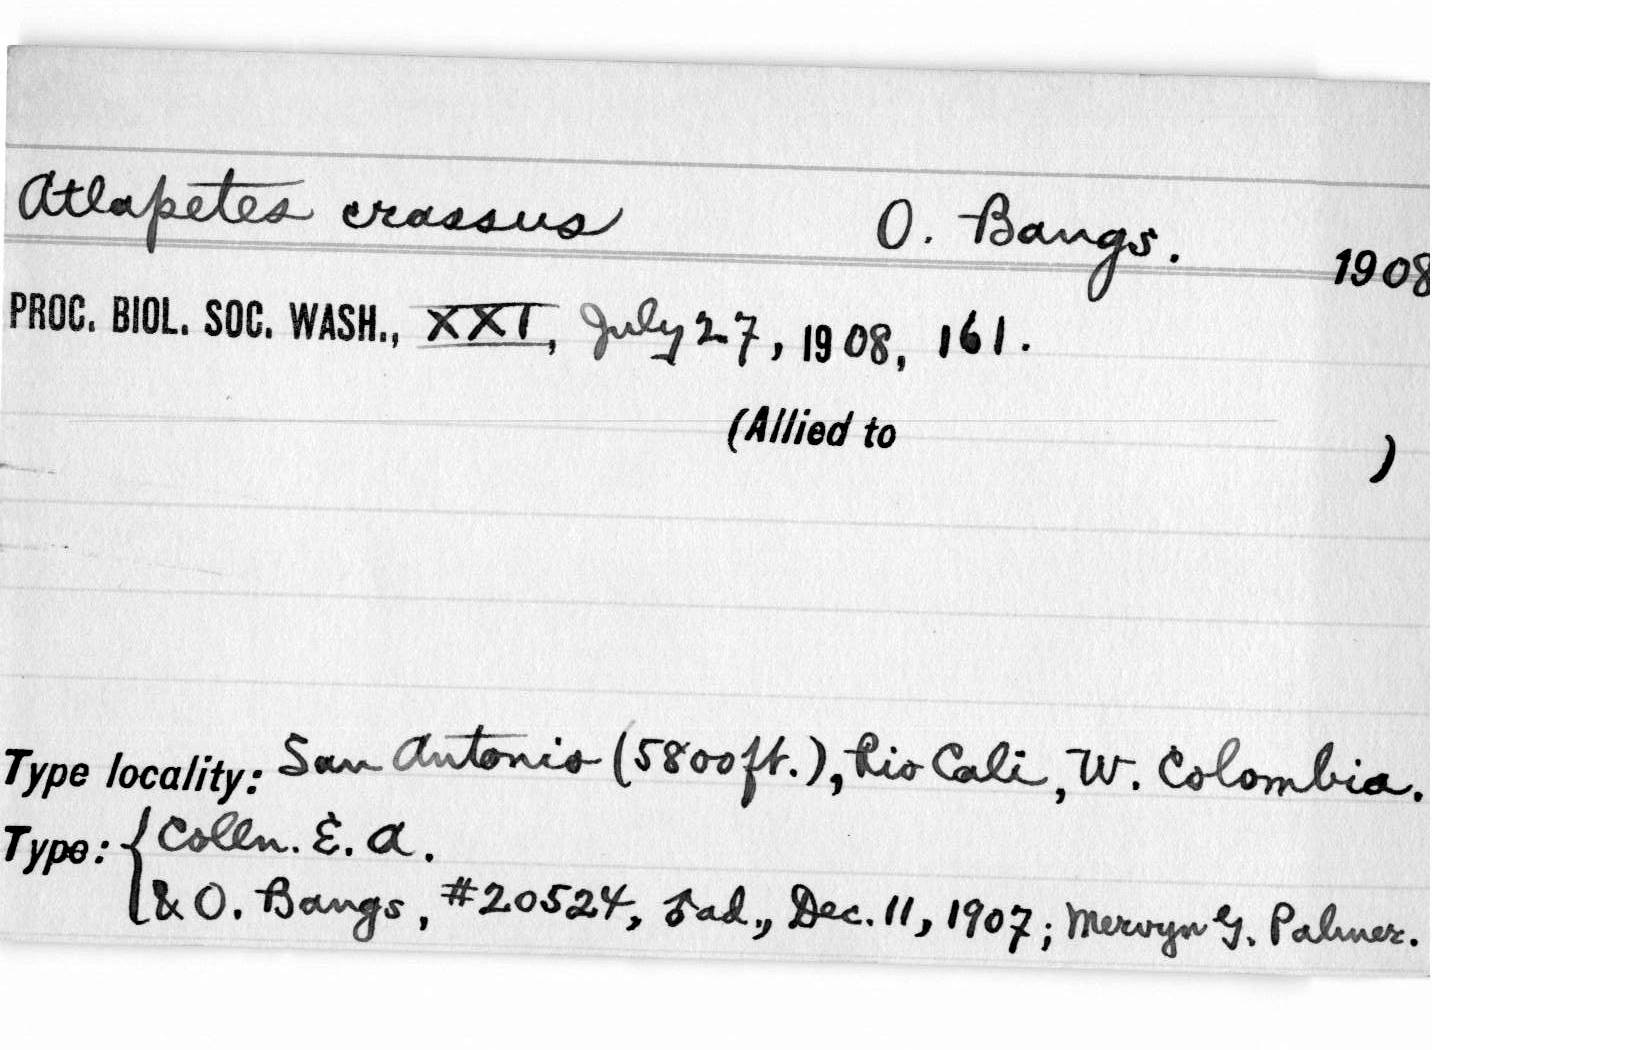 Atlapetes crassus O. Bangs. 1908
PROC. BIOL. SOC. WASH., XXI, July 27, 1908, 161.
(Allied to )
Type locality: San Antonio (5800 ft.), Rio Cali, W. Colombia.
Type: { Colln. E. A.
& O. Bangs, #20524, ♂ad., Dec. 11, 1907; Mervyn G. Palmer.